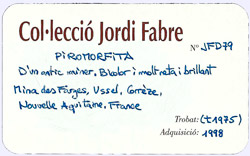 Col·lecció Jordi Fabre
Nº JFD79
PIROMORFITA
D'un antic miner. Bicolor i molt neta i brillant
Mina des Farges, Ussel, Corrèze,
Nouvelle Aquitaine, France
Trobat: (±1975)
Adquisició: 1998